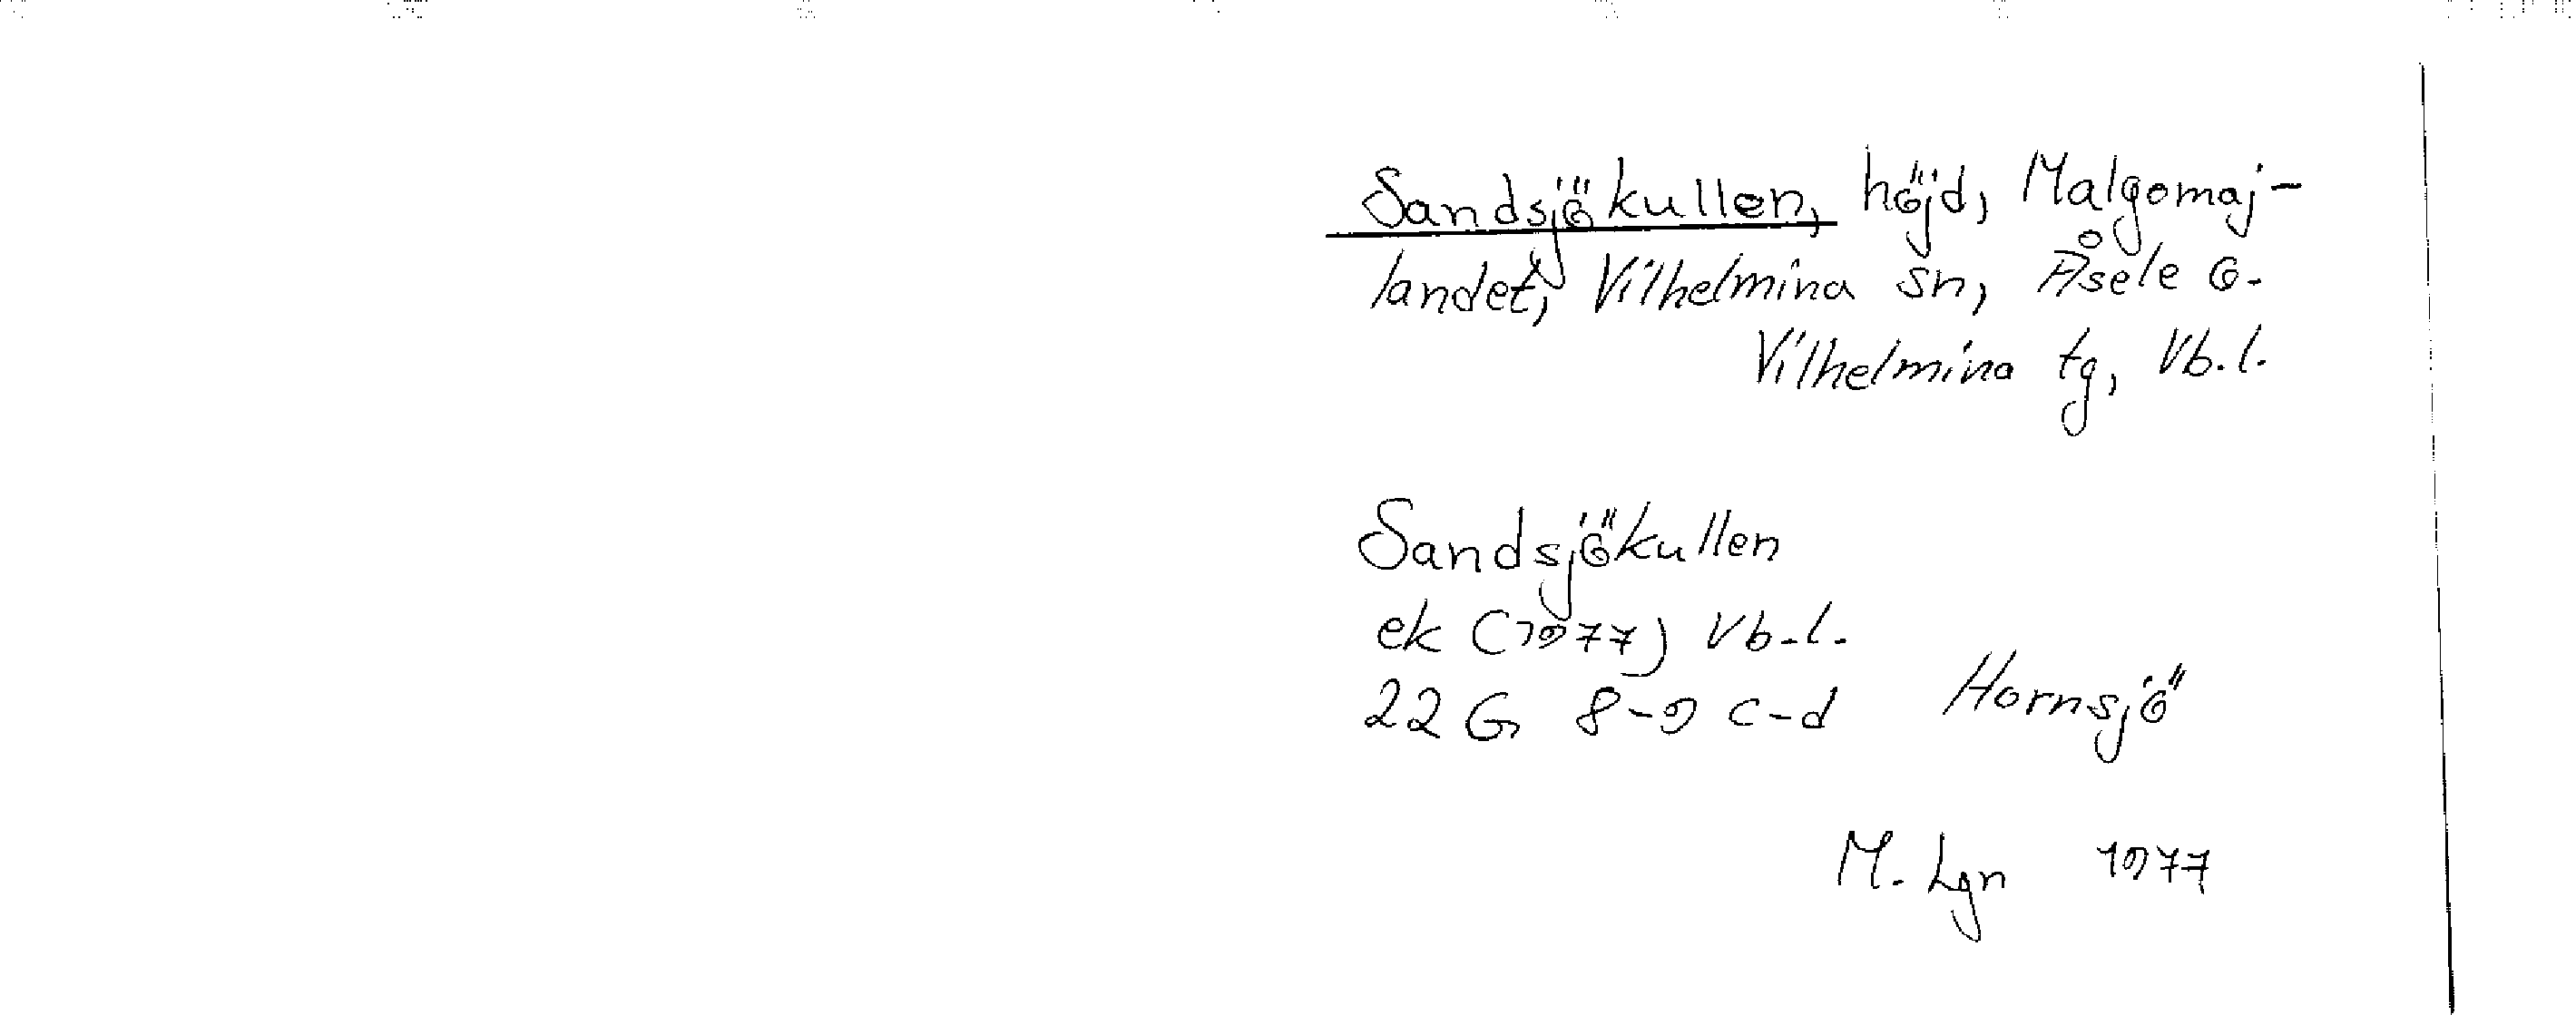 Sandsjökullen, höjd, Malgomaj-
landet, Vilhelmina sn, Åsele o.
Vilhelmina tg, Vb.l.
Sandsjökullen
ek (1977) Vb.l.
22 G 8-9 c-d Hornsjö
M. Lgn 1977